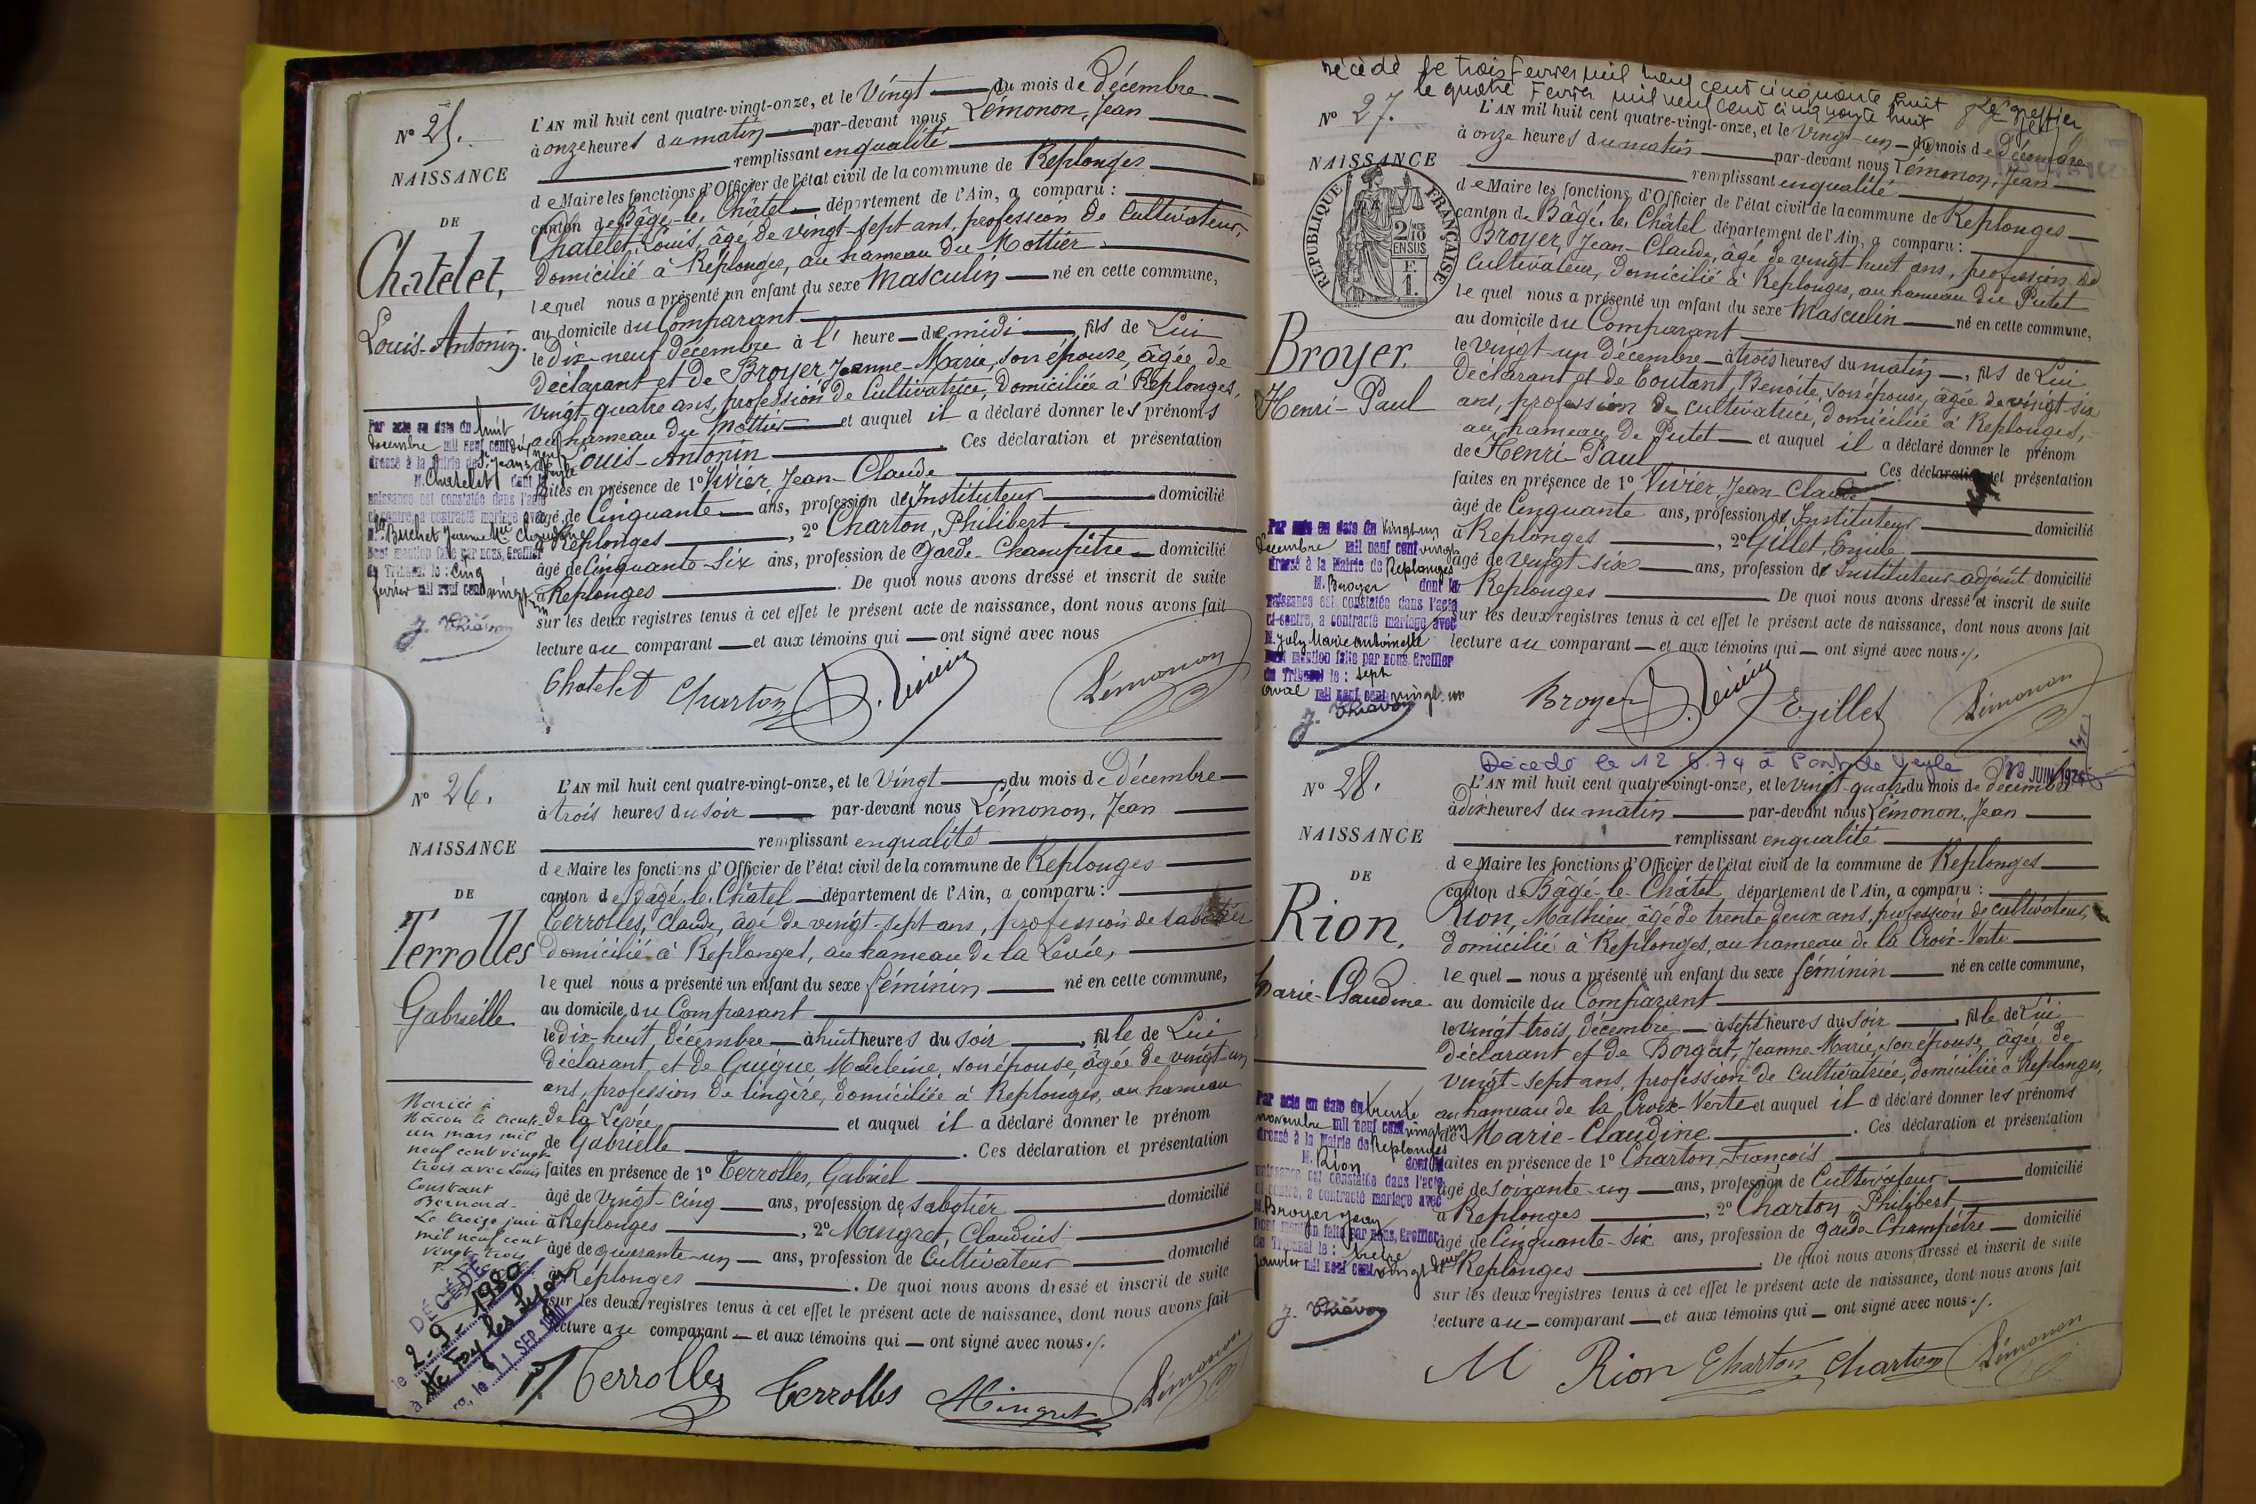 N° 25.
NAISSANCE
DE
Chatelet,
Louis-Antonin.
L'AN mil huit cent quatre-vingt-onze, et le Vingt du mois de décembre
à onze heures du matin par-devant nous Lémonon, Jean
remplissant en qualité
de Maire les fonctions d'Officier de l'état civil de la commune de Replonges
canton de Bâgé-le-Châtel département de l'Ain, a comparu :
Chatelet, Louis, âgé de vingt-sept ans, profession de Cultivateur,
domicilié à Replonges, au hameau du Mottier
lequel nous a présenté un enfant du sexe Masculin né en cette commune,
au domicile du Comparant
le Dix-neuf décembre à l' heure de midi, fils de Lui
déclarant et de Broyer, Jeanne-Marie, son épouse, âgée de
vingt-quatre ans, profession de Cultivatrice, domiciliée à Replonges,
au hameau du Mottier et auquel il a déclaré donner les prénoms
Louis-Antonin. Ces déclaration et présentation
faites en présence de 1° Vivier, Jean-Claude
âgé de Cinquante ans, profession d'Instituteur domicilié
à Replonges, 2° Charton, Philibert
âgé de Cinquante-six ans, profession de Garde-Champêtre domicilié
à Replonges. De quoi nous avons dressé et inscrit de suite
sur les deux registres tenus à cet effet le présent acte de naissance, dont nous avons fait
lecture au comparant et aux témoins qui ont signé avec nous
Chatelet Charton J. Vivier Lémonon
Par acte en date du huit
décembre mil neuf cent dix neuf
dressé à la Mairie de St Jean s/ Veyle
M. Chatelet dont la
naissance est constatée dans l'acte
ci-contre, a contracté mariage avec
Mlle Buchet Jeanne Mie Claudine
Dont mention faite par nous, Greffier
du Tribunal le : cinq
février mil neuf cent vingt
N° 26.
NAISSANCE
DE
Terrolles
Gabrielle
L'AN mil huit cent quatre-vingt-onze, et le Vingt du mois de Décembre
à trois heures du soir par-devant nous Lémonon, Jean
remplissant en qualité
de Maire les fonctions d'Officier de l'état civil de la commune de Replonges
canton de Bâgé-le-Châtel département de l'Ain, a comparu :
Terrolles, Claude, âgé de vingt-sept ans, profession de sabotier
domicilié à Replonges, au hameau de la Levée,
lequel nous a présenté un enfant du sexe féminin né en cette commune,
au domicile du Comparant
le Dix-huit Décembre à huit heures du soir, fille de Lui
déclarant, et de Guigue, Madeleine, son épouse, âgée de vingt-un
ans, profession de lingère, domiciliée à Replonges, au hameau
de la Levée et auquel il a déclaré donner le prénom
de Gabrielle. Ces déclaration et présentation
faites en présence de 1° Terrolles, Gabriel
âgé de vingt-cinq ans, profession de sabotier domicilié
à Replonges, 2° Mingret, Claudius
âgé de quarante-un ans, profession de Cultivateur domicilié
à Replonges. De quoi nous avons dressé et inscrit de suite
sur les deux registres tenus à cet effet le présent acte de naissance, dont nous avons fait
lecture au comparant et aux témoins qui ont signé avec nous ./.
Terrolles Terrolles Mingret Lémonon
Mariée à
Mâcon le trente
un mars mil
neuf cent vingt
trois avec Louis
Constant
Bernard.
Le treize juin
mil neuf cent
vingt trois
DÉCÉDÉE
le 2-9-1980
à Ste Foy les Lyon
le 11 SEP. 1980
décédé le trois février mil neuf cent cinquante huit
le quatre Février mil neuf cent cinquante huit Le greffier
N° 27.
NAISSANCE
RÉPUBLIQUE FRANÇAISE
2/10 EN SUS
F. 1.
Broyer.
Henri-Paul
L'AN mil huit cent quatre-vingt-onze, et le Vingt-un du mois de Décembre
à onze heures du matin par-devant nous Lémonon, Jean
remplissant en qualité
de Maire les fonctions d'Officier de l'état civil de la commune de Replonges
canton de Bâgé-le-Châtel département de l'Ain, a comparu :
Broyer, Jean-Claude, âgé de vingt-huit ans, profession de
Cultivateur, domicilié à Replonges, au hameau du Putet
lequel nous a présenté un enfant du sexe Masculin né en cette commune,
au domicile du Comparant
le Vingt-un Décembre à trois heures du matin, fils de Lui
Déclarant et de Coutant, Benoite, son épouse, âgée de vingt-six
ans, profession de cultivatrice, domiciliée à Replonges,
au hameau de Putet et auquel il a déclaré donner le prénom
de Henri-Paul. Ces déclaration et présentation
faites en présence de 1° Vivier, Jean-Claude
âgé de Cinquante ans, profession d'Instituteur domicilié
à Replonges, 2° Gillet, Emile
âgé de Vingt-six ans, profession d'Instituteur adjoint domicilié
à Replonges De quoi nous avons dressé et inscrit de suite
sur les deux registres tenus à cet effet le présent acte de naissance, dont nous avons fait
lecture au comparant et aux témoins qui ont signé avec nous ./.
Broyer J. Vivier E. Gillet Lémonon
Par acte en date du Vingt-un
décembre mil neuf cent vingt
dressé à la Mairie de Replonges
M. Broyer dont la
naissance est constatée dans l'acte
ci-contre, a contracté mariage avec
M. July Marie Antoinette
Dont mention faite par nous, Greffier
du Tribunal le : sept
avril mil neuf cent vingt un
Décédé le 12 6.74 à Pont de Veyle
JUIN 1974
N° 28.
NAISSANCE
DE
Rion,
Marie-Claudine
L'AN mil huit cent quatre-vingt-onze, et le Vingt-quatre du mois de décembre
à dix heures du matin par-devant nous Lémonon, Jean
remplissant en qualité
de Maire les fonctions d'Officier de l'état civil de la commune de Replonges
canton de Bâgé-le-Châtel département de l'Ain, a comparu :
Rion, Mathieu, âgé de trente-deux ans, profession de cultivateur,
domicilié à Replonges, au hameau de la Croix-Verte
lequel nous a présenté un enfant du sexe féminin né en cette commune,
au domicile du Comparant
le Vingt-trois décembre à sept heures du soir, fille de Lui
déclarant et de Borgat, Jeanne-Marie, son épouse, âgée de
vingt-sept ans, profession de Cultivatrice, domiciliée à Replonges,
au hameau de la Croix-Verte et auquel il a déclaré donner les prénoms
de Marie-Claudine. Ces déclaration et présentation
faites en présence de 1° Charton, François
âgé de soixante-un ans, profession de Cultivateur domicilié
à Replonges, 2° Charton, Philibert
âgé de Cinquante-six ans, profession de garde-Champêtre domicilié
à Replonges. De quoi nous avons dressé et inscrit de suite
sur les deux registres tenus à cet effet le présent acte de naissance, dont nous avons fait
lecture au comparant et aux témoins qui ont signé avec nous ./.
M Rion Charton Charton Lémonon
Par acte en date du trente
novembre mil neuf cent vingt un
dressé à la Mairie de Replonges
M. Rion dont la
naissance est constatée dans l'acte
ci-contre, a contracté mariage avec
M. Broyer Jean
Dont mention faite par nous, Greffier
du Tribunal le :
janvier mil neuf cent vingt deux